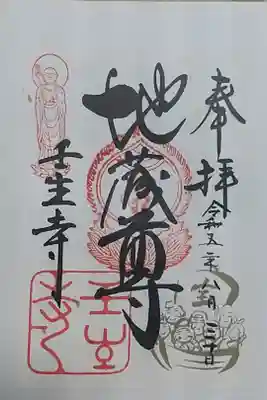 奉拝
令和五年八月三十日
地蔵尊
壬生寺